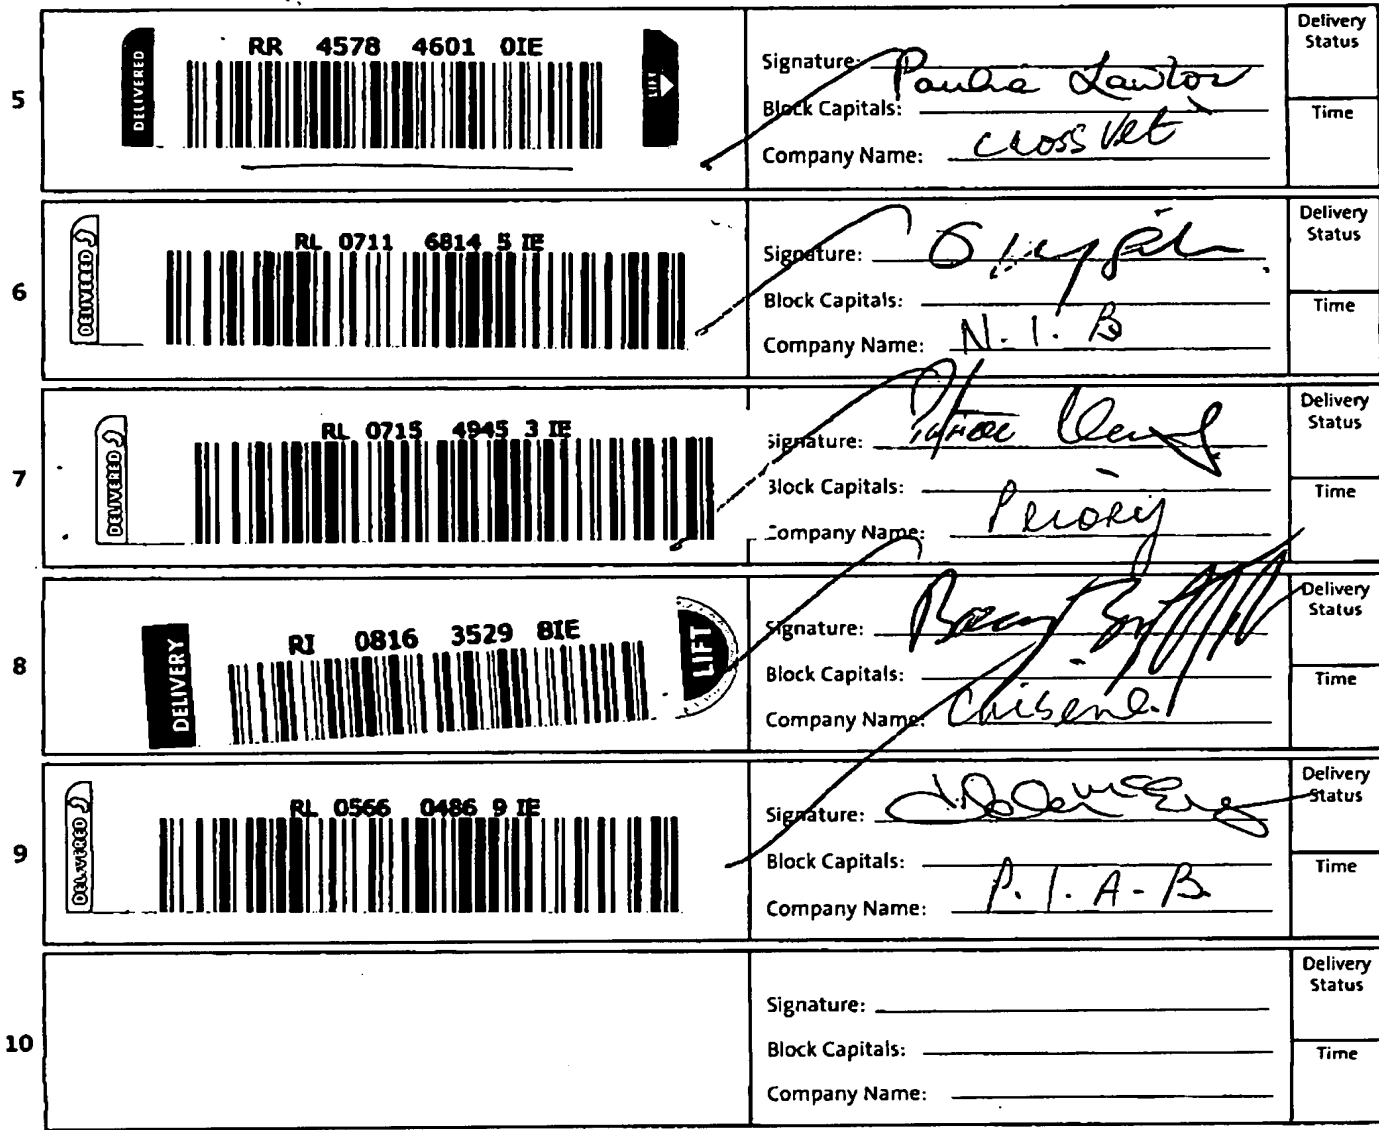 5
DELIVERED
RR 4578 4601 0IE
LIFT
Signature: Paula Lawlor
Block Capitals:
Company Name: Cross Vet
Delivery Status
Time
6
DELIVERED
RL 0711 6814 5 IE
Signature:
Block Capitals:
Company Name: N.I.B
Delivery Status
Time
7
DELIVERED
RL 0715 4945 3 IE
Signature:
Block Capitals:
Company Name: Priory
Delivery Status
Time
8
DELIVERY
RI 0816 3529 8IE
LIFT
Signature:
Block Capitals:
Company Name:
Delivery Status
Time
9
DELIVERED
RL 0566 0486 9 IE
Signature:
Block Capitals:
Company Name: P.I.A-B.
Delivery Status
Time
10
Signature:
Block Capitals:
Company Name:
Delivery Status
Time